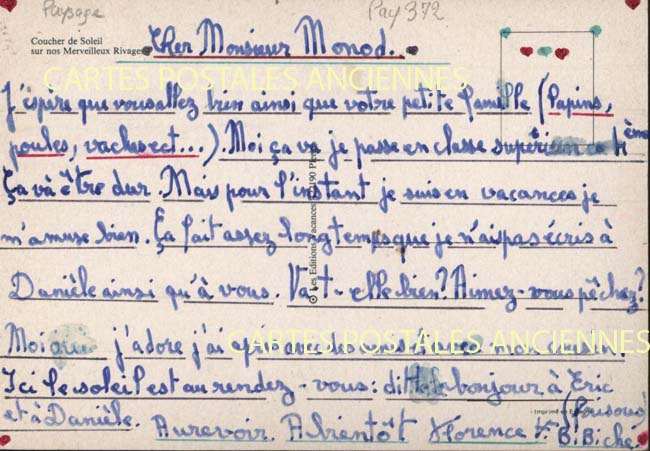 Paysage
Pay 372
Coucher de Soleil
sur nos Merveilleux Rivages
Cher Monsieur Monod.
CARTES POSTALES ANCIENNES
J'éspère que vous allez bien ainsi que votre petite famille (lapins,
poules, vaches ect...). Moi ça va je passe en classe supérieure 4ème
Ça và être dur. Mais pour l'instant je suis en vacances je
m'amuse bien. Ça fait assez longtemps que je n'ai pas écris à
Danièle ainsi qu'à vous. Va-t-elle bien? Aimez-vous pêchez?
CARTES POSTALES ANCIENNES
Moi j'adore j'ai appris avec mon cousin.
Ici le soleil est au rendez-vous: ditte bonjour à Eric
et à Danièle. Aurevoir. A bientôt Florence
BiBiche.
© Les Editions Vacances
- Imprimé en